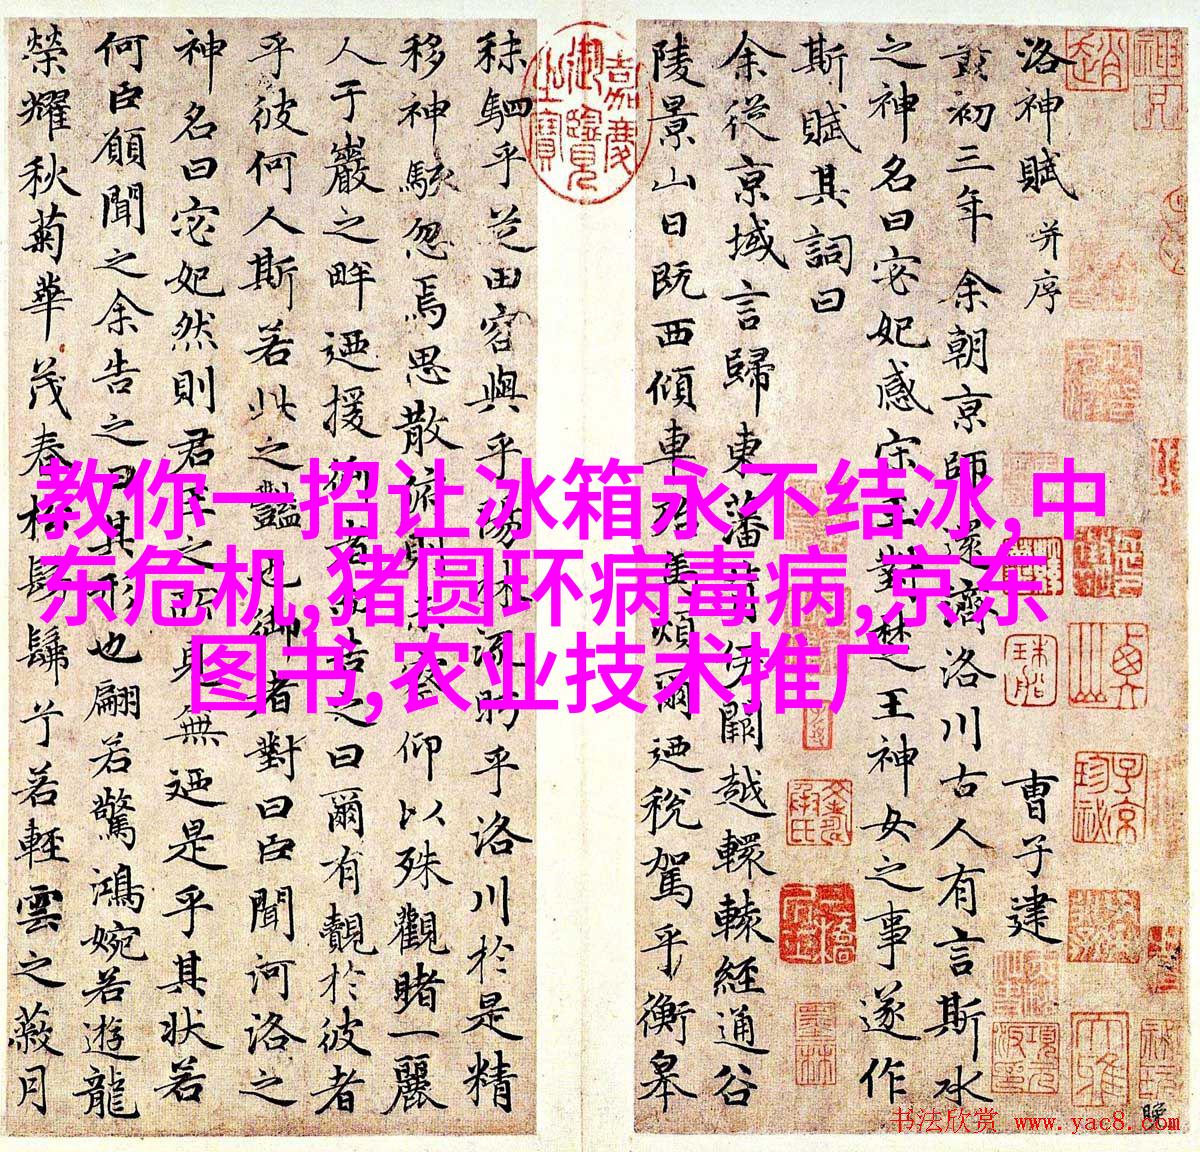 教你一招让冰箱永不结冰,中
东危机,猪圆环病毒病,京东
图书,农业技术推广
洛神賦 并序 曹子建
黃初三年余朝京師還濟洛川古人有言斯水
之神名曰宓妃感宋玉對楚王神女之事遂作
斯賦其詞曰
余從京域言歸東藩背伊闕越轘轅經通谷
陵景山日既西傾車殆馬煩爾迺稅駕乎衡皋
秣駟乎芝田容與乎陽林流盻乎洛川於是精
移神駭忽焉思散俯則未察仰以殊觀睹一麗
人于巖之畔迺援御者而告之曰爾有覿於彼者
乎彼何人斯若此之豔也御者對曰臣聞河洛之
神名曰宓妃然則君王之所見無迺是乎其状若
何臣願聞之余告之曰其形也翩若驚鴻婉若遊龍
榮耀秋菊華茂春松髣髴兮若輕雲之蔽月
嘉慶御覽之寶
书法欣赏 www.yac8.com